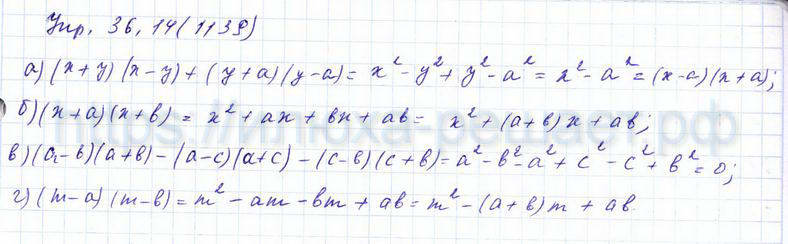 Упр. 36.14(1139)
а) (x+y)(x-y)+(y+a)(y-a)= x²-y²+y²-a²= x²-a²=(x-a)(x+a);
б)(x+a)(x+в) = x²+ax+вx+aв= x²+(a+в)x+aв;
в)(a-в)(a+в)-(a-c)(a+c)-(c-в)(c+в)=a²-в²-a²+c²-c²+в²=0;
г)(m-a)(m-в)=m²-am-вm+aв=m²-(a+в)m+aв
https://илюха-решает.рф